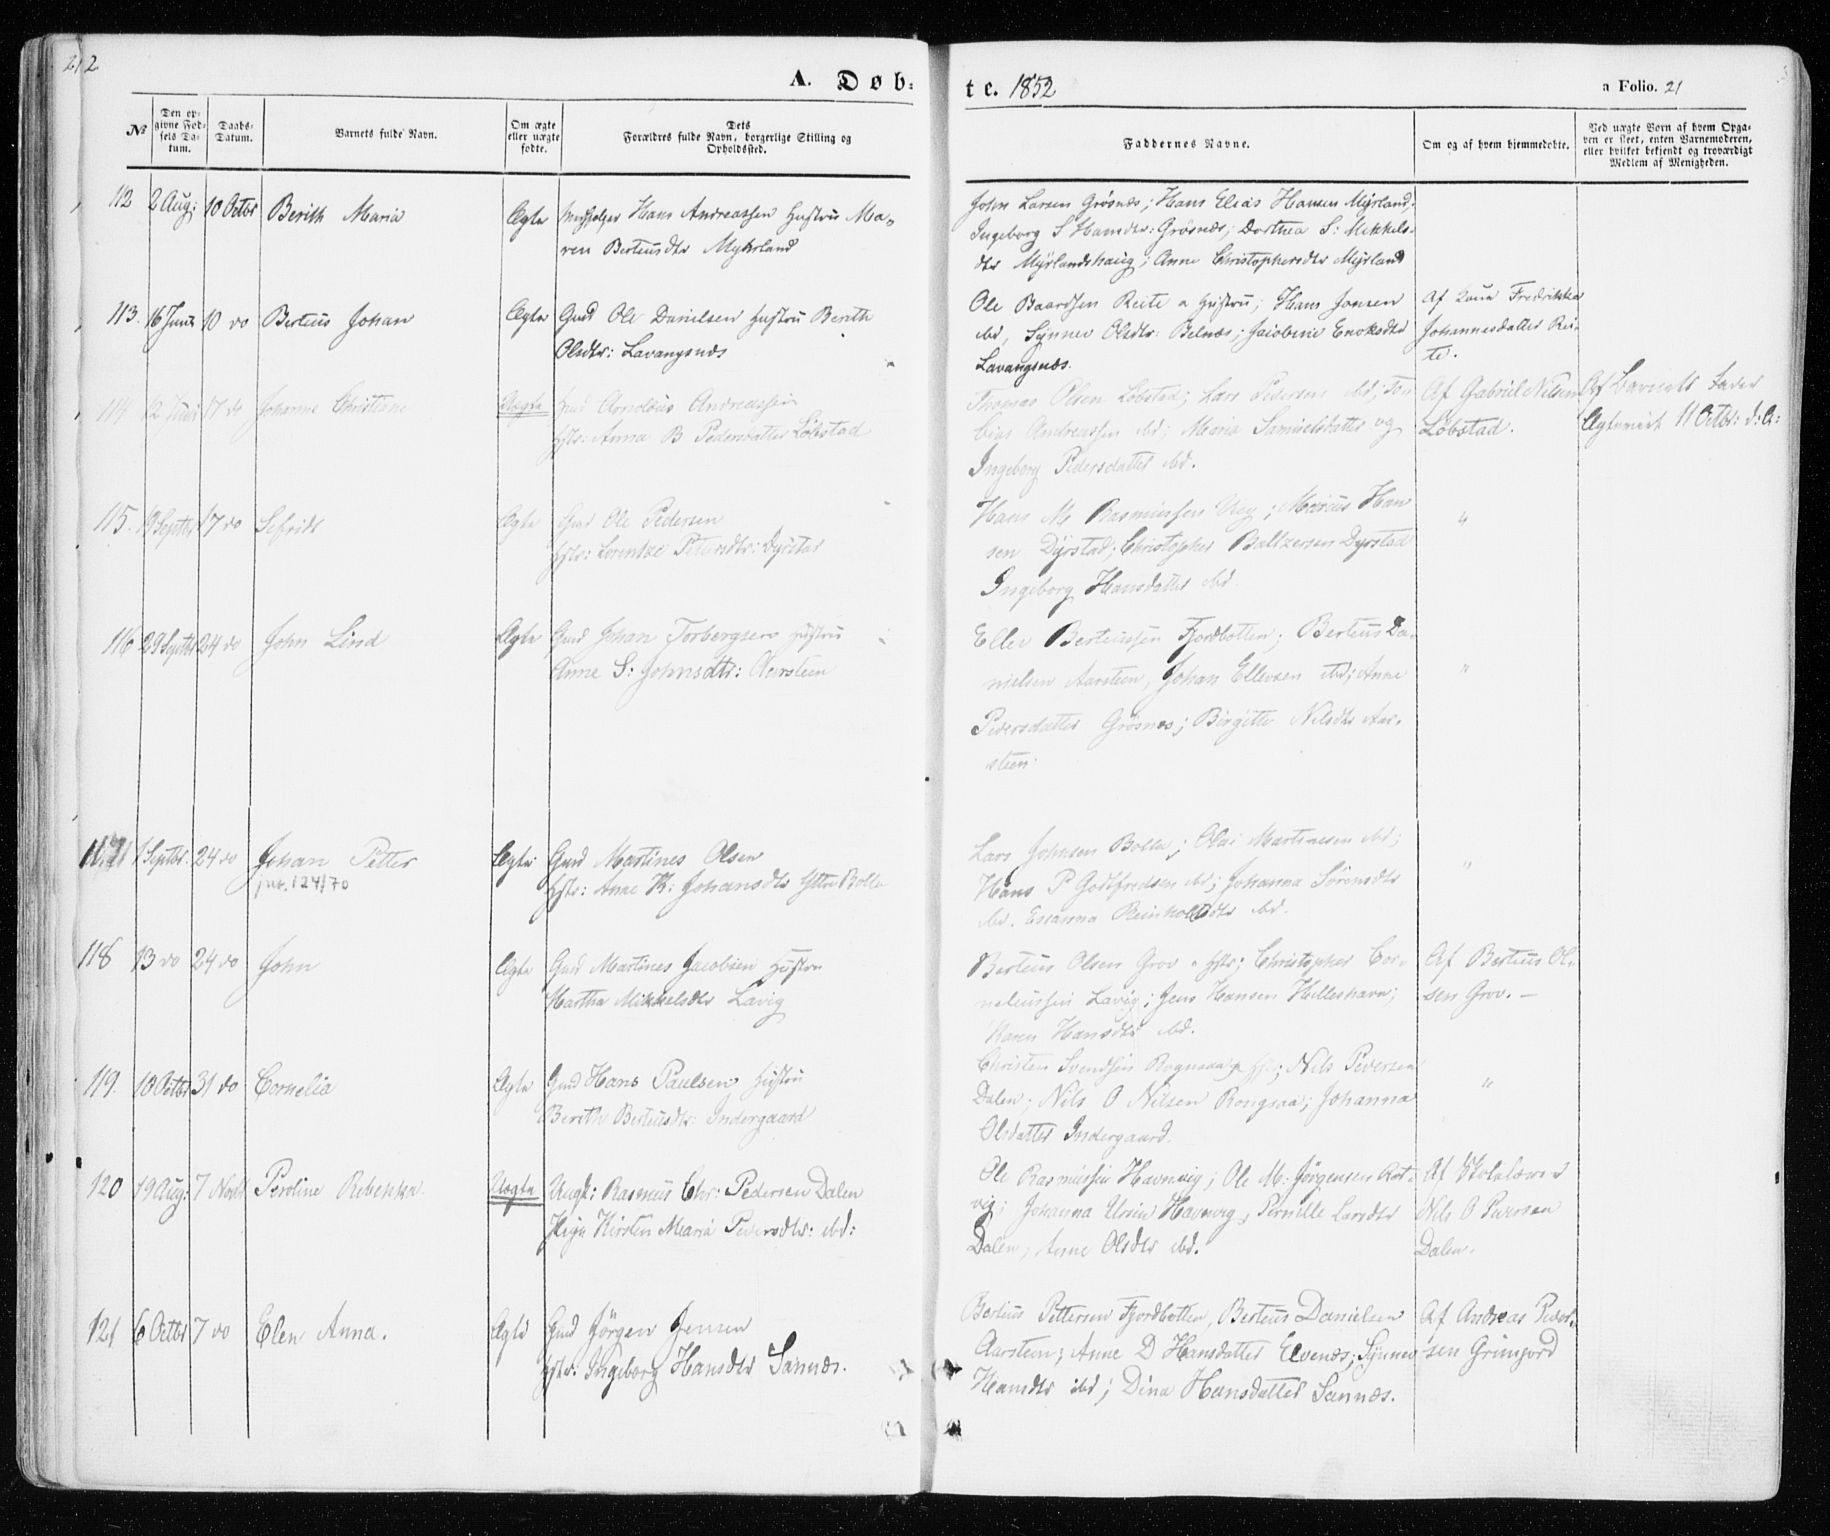 212
A. Døb: te. 1852
a Folio. 21
No Den op-givne Fød-sels Da-tum. Daabs-Datum. Barnets fulde Navn. Om ægte eller uægte fødte. Dets Forældres fulde Navn, borgerlige Stilling og Opholdssted. Faddernes Navne. Om og af hvem hjemmedøbte. Ved uægte Børn af hvem Opga-ven er skeet, enten Barnemoderen, eller hvilket bekjendt og troværdigt Medlem af Menigheden.
112 2 Aug: 10 Octbr Berith Maria Ægte Hans Andreassen Hustru Ma-
ren Berteusdtr Myhrland
John Larsen Grøsnæs; Hans Elias Hansen Myrland;
Ingeborg S Hansdtr: Grøsnæs; Dorthea S: Mikkels-
dtr Myrlandshaug; Anne Christophersdtr Myrland
113. 16 Juni 10 do Berteus Johan Ægte Gmd Ole Danielsen Hustru Berith
Olsdtr: Lavangsnæs
Ole Baardsen Reite & Hustru; Hans Jonsen
ibd, Synnev Olsdtr: Belnæs; Jacobine Enoksdtr
Lavangsnæs.
Af Fredrikka
Johannesdatter Rei-
te.
114 12 Juni 17 do Johanne Christiane Uægte Gmd Arnoldus Andreassen
Hstr: Anna B Pedersdatter Løbstad
Thomas Olsen Løbstad; Lars Pedersen ibd; To-
bias Andreassen ibd; Maria Samuelsdatter og
Ingeborg Pedersdatter ibd.
Af Gabriel Nilsen
Løbstad.
Af Barnets Fader
Ægteviet 11 Octbr: d: A:
115. 19 Septbr 17 do Sefrids Ægte Gmd Ole Pedersen
Hstr: Lorentze Petersdtr: Dyrstad
Hans M Rasmussen Vig; Marcus Han
sen Dyrstad; Christopher Baltzersen Dyrstad
Ingeborg Hansdatter ibd.
"
116 29 Septbr 24 do John Lind Ægte Gmd Johan Torbergsen Hustru
Anne S: Johnsdtr: Aarsteen
Eller Berteussen Fjordbotten; Berteus Da-
nielsen Aarsteen, Johan Ellevsen ibd; Anne
Pedersdatter Grøsnes; Birgitte Nilsdtr Aar-
steen.
"
117 1 Septbr. 24 do Johan Petter Ægte Gmd Martines Olsen
jnr. 124/70
Hstr: Anne K: Johansdtr Yttre Bolle
Lars Johnsen Bolle; Olai Martinesen ibd;
Hans P Godtfredsen ibd; Johanna Sørensdtr
ibd. Susanna Reinholdtdtr ibd.
"
118 13 do 24 do John Ægte Gmd Martines Jacobsen Hustru
Martha Mikkelsdtr Lavig
Berteus Olsen Grov & Hstr; Christopher Cor-
neliussen Lavig; Jens Hansen Hilleshavn;
Karen Hansdtr ibd.
Af Berteus Ol-
sen Grov. –
119. 10 Octbr 31 do Cornelia Ægte Gmd Hans Paulsen Hustru
Berith Berteusdtr: Indergaard
Christen Svendsen Rognsaa & Hstr; Nils Pedersen
Dalen; Nils O Nilsen Rongsaa; Johanna
Olsdatter Indergaard.
"
120 19 Aug: 7 Novbr Peroline Rebekka Uægte Ungk: Rasmus Chr: Pedersen Dalen
Pige Kirsten Maria Pedersdtr: ibd:
Ole Rasmussen Havnvig; Ole M: Jørgensen Rot-
vig; Johanna Ursin Havnvig, Pernille Larsdtr
Dalen; Anne Olsdtr ibd.
Af Skolelærer
Nils O Pedersen
Dalen.
121 6 Octbr 7 do Elen Anna. Ægte Gmd Jørgen Jensen
Hstr: Ingeborg Hansdtr Sannæs.
Berteus Pettersen Fjordbotten, Berteus Danielsen
Aarsteen; Anne D Hansdatter Elvenæs; Synnev
Hansdtr ibd; Dina Hansdatter Sannæs.
Af Andreas Peder-
sen Grimjord